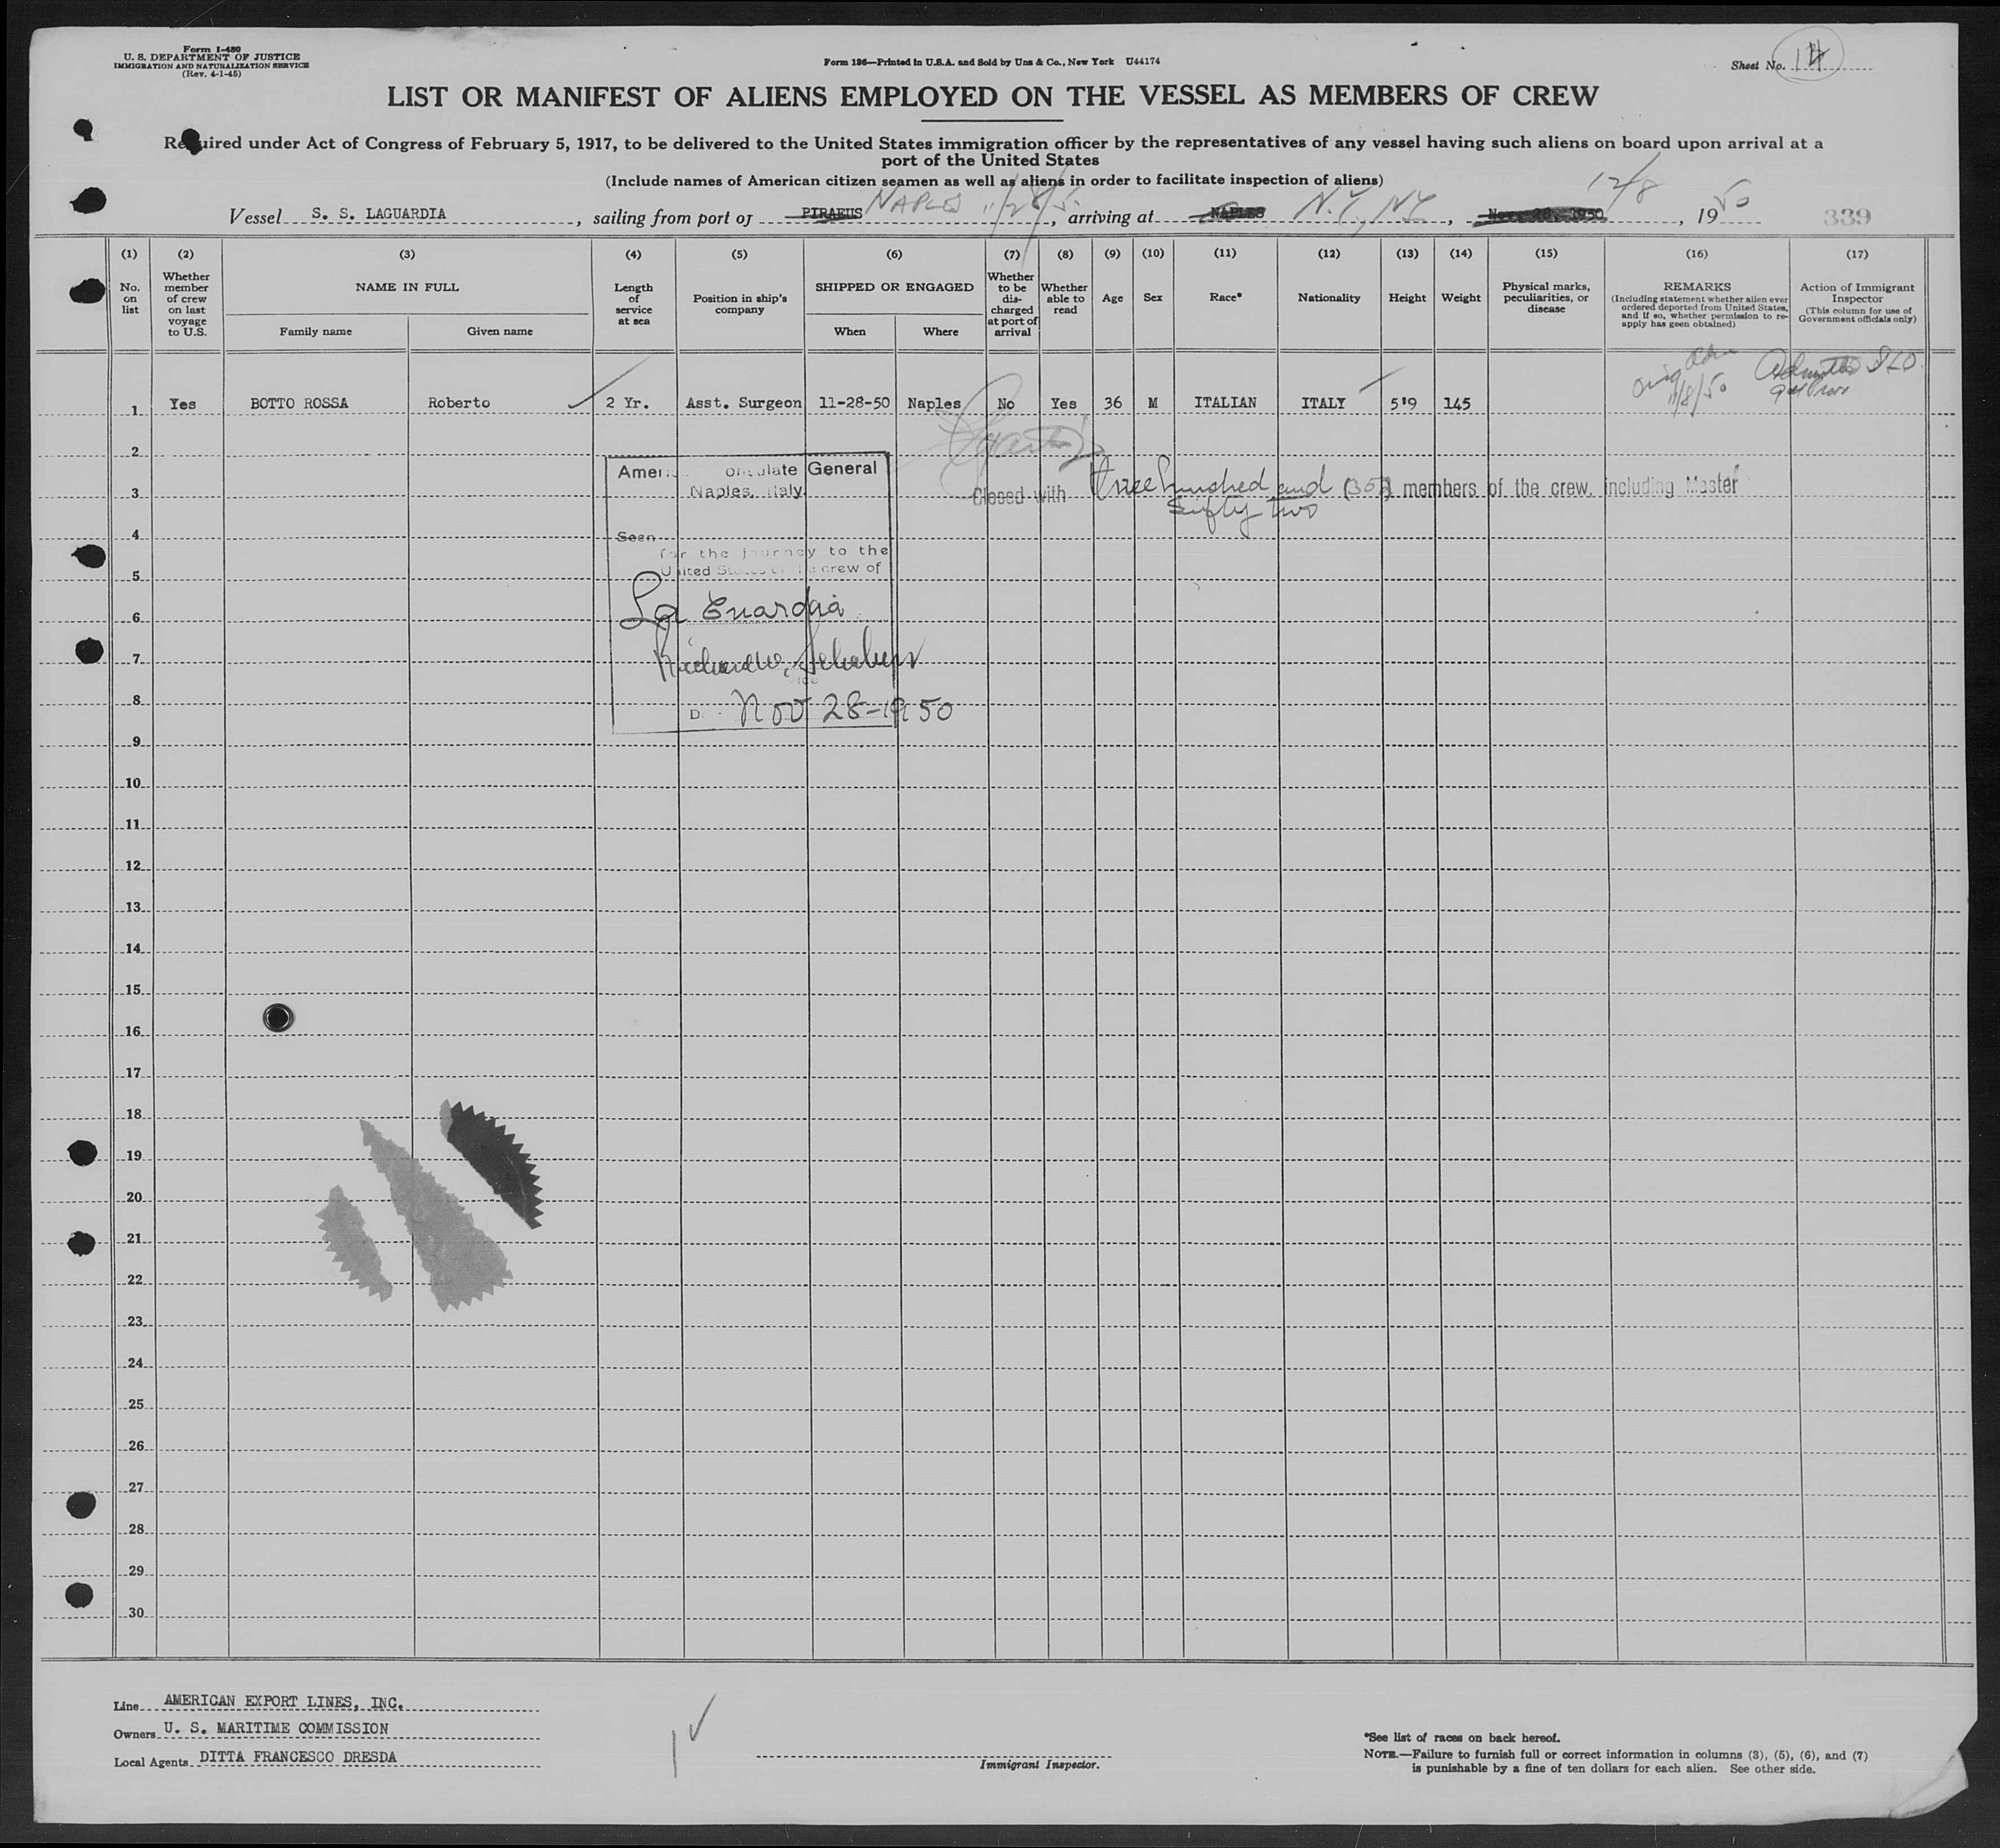 Form I-480
U. S. DEPARTMENT OF JUSTICE
IMMIGRATION AND NATURALIZATION SERVICE
(Rev. 4-1-45)
Form 186—Printed in U.S.A. and Sold by Unz & Co., New York U44174
Sheet No. 14
LIST OR MANIFEST OF ALIENS EMPLOYED ON THE VESSEL AS MEMBERS OF CREW
Required under Act of Congress of February 5, 1917, to be delivered to the United States immigration officer by the representatives of any vessel having such aliens on board upon arrival at a
port of the United States
(Include names of American citizen seamen as well as aliens in order to facilitate inspection of aliens)
Vessel S. S. LAGUARDIA, sailing from port of PIRAEUS NAPLES 11/28/50, arriving at NAPLES N.Y., NY, Nov. 28, 1950 12/8, 1950
339
(1) (2) (3) (4) (5) (6) (7) (8) (9) (10) (11) (12) (13) (14) (15) (16) (17)
No. on list
Whether member of crew on last voyage to U.S.
NAME IN FULL
Family name Given name
Length of service at sea
Position in ship's company
SHIPPED OR ENGAGED
When Where
Whether to be discharged at port of arrival
Whether able to read
Age
Sex
Race*
Nationality
Height
Weight
Physical marks, peculiarities, or disease
REMARKS
(Including statement whether alien ever ordered deported from United States, and if so, whether permission to re-apply has geen obtained)
Action of Immigrant Inspector
(This column for use of Government officials only)
1 Yes BOTTO ROSSA Roberto 2 Yr. Asst. Surgeon 11-28-50 Naples No Yes 36 M ITALIAN ITALY 5'9 145
11/8/50
Admitted
2
American Consulate General
3
Naples, Italy
Closed with three hundred and members of the crew, including Master
two
4
Seen
for the journey to the
5
United States of the crew of
6
La Guardia
7
8
Nov 28-1950
9
10
11
12
13
14
15
16
17
18
19
20
21
22
23
24
25
26
27
28
29
30
Line AMERICAN EXPORT LINES, INC.
Owners U. S. MARITIME COMMISSION
Local Agents DITTA FRANCESCO DRESDA
Immigrant Inspector.
*See list of races on back hereof.
NOTE.—Failure to furnish full or correct information in columns (3), (5), (6), and (7)
is punishable by a fine of ten dollars for each alien. See other side.